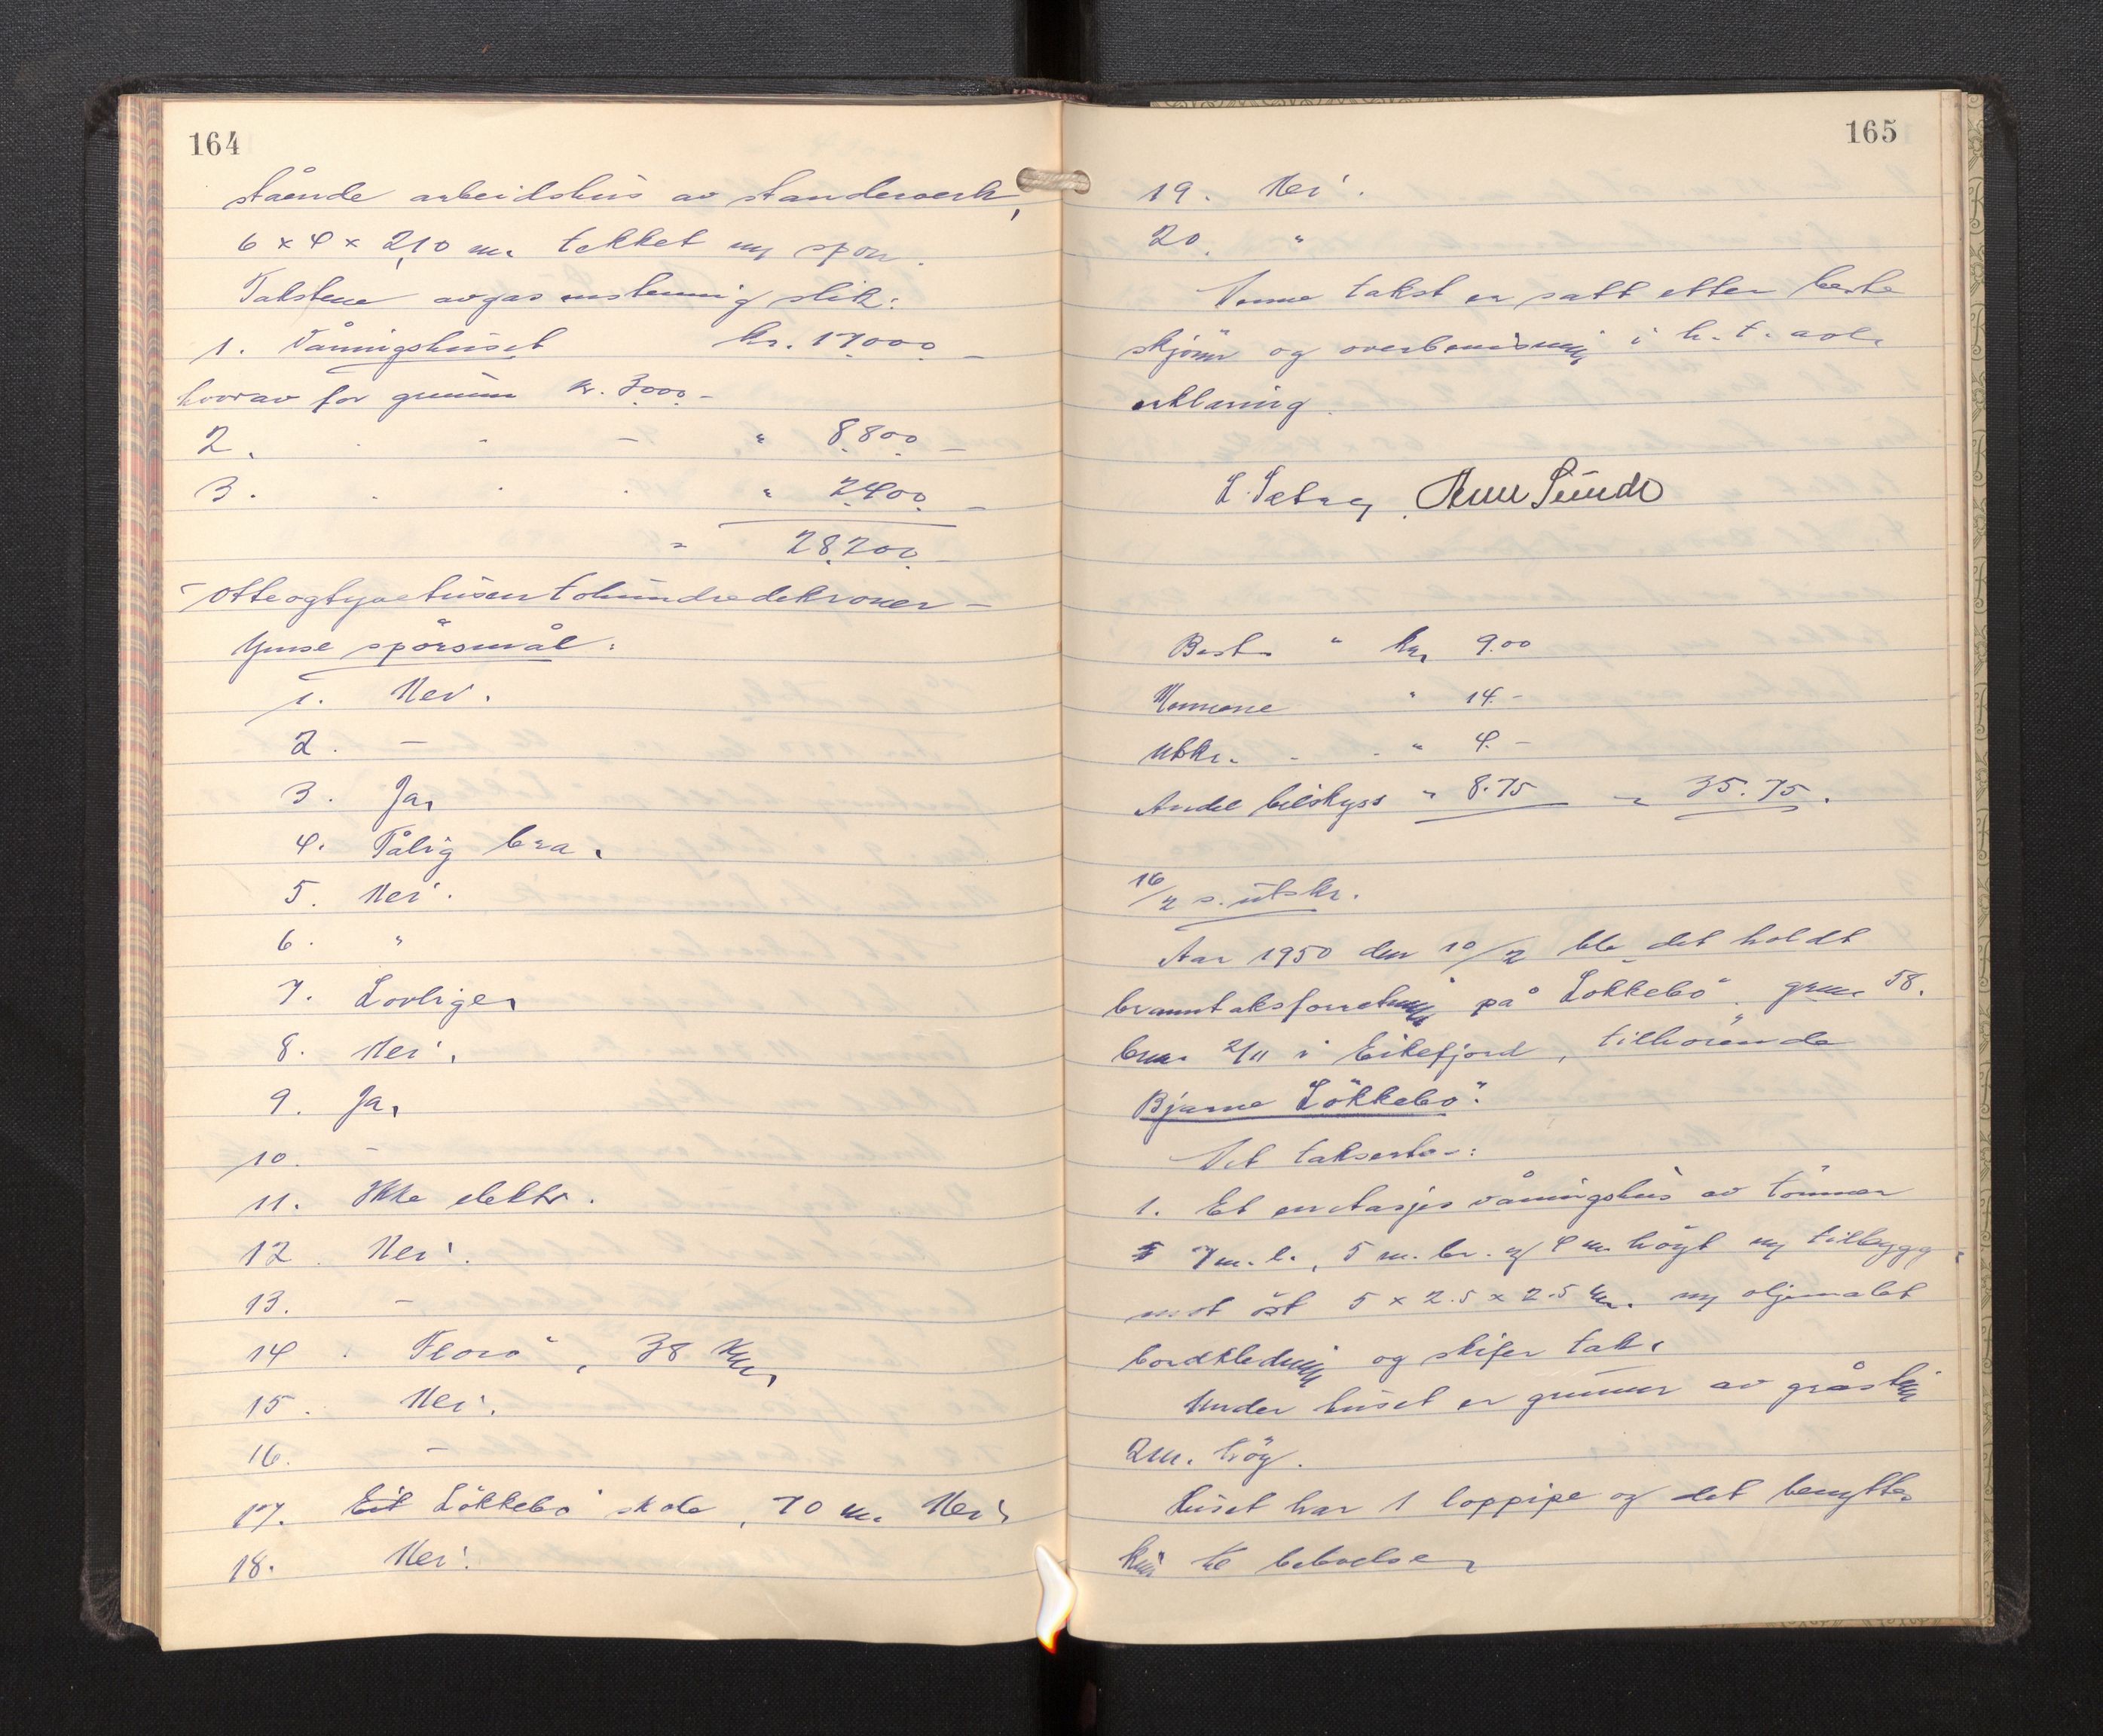 164
stående arbeidshus av standerverk,
6 x 4 x 2,10 m. tekket m/ spon.
Takstene avgas enstemmig slik:
1. Våningshuset kr. 17.000 -
hvorav for grunnm kr. 3.000.-
2. - - - " 8.800 -
3. . . . " 2.400 -
" 28.200 -
- Otteogtyvetusentohundredekroner -
Ymse spörsmål:
1. Nei.
2. -
3. Ja,
4. Tålig bra.
5. Nei.
6. "
7. Lovlige,
8. Nei.
9. Ja,
10. -
11. Ikke elektr.
12. Nei.
13. -
14. Florö, 38 km,
15. Nei.
16. -
17. Eit Lökkebö skole, 70 m. Nei.
18. Nei.
165
19. Nei.
20. "
Denne takst er satt etter beste
skjönn og overbevisning i h. t. avl.
erklæring.
L. Sætre, Arne Sunde
Best. " kr, 9.00
Mennene " 14.-
Utskr. - - " 4.-
Andel bilskyss " 8.75 " 35.75.
16/2 s. utskr.
Aar 1950 den 10/2 ble det holdt
branntakstforretning på Lökkebö, grnr. 58.
bnr. 2/11 i Eikefjord, tilhörende
Bjarne Lökkebö.
Det takserte:
1. Et enetasjes våningshus av tömmer
7 m. l., 5 m. br. og 4 m. högt m/ tilbygg
mot öst 5 x 2.5 x 2.5 m. m/ oljemalet
bordkledning og skifer tak.
Under huset er grunnmur av gråstein
2 m. hög.
Huset har 1 loppipe og det benyttes
kun til beboelse,